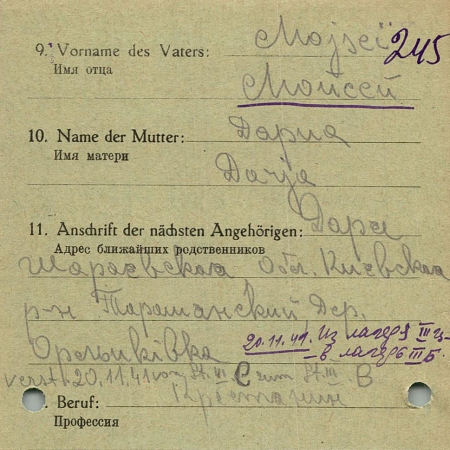 9. Vorname des Vaters: Mojseï 245
Имя отца
Мойсей
10. Name der Mutter: Дариа
Имя матери
Darja
11. Anschrift der nächsten Angehörigen: Даря
Адрес ближайших родственников
обл. Киевская
р-н Таращанский Дер.
20.11.41. Из лагеря III Ц-
в лагерь III Б.
verst. 20.11.41 von St. VI C zum St. III B
. Beruf: Крестянин
Профессия